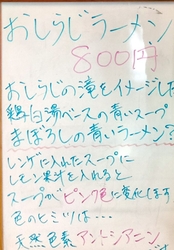 おしらじラーメン
800円
おしらじの滝をイメージした
鶏白湯ベースの青いスープ
まぼろしの青いラーメン?
レンゲに入れたスープに
レモン果汁を入れると
スープがピンク色に変化します
色のヒミツは…
天然色素 アントシアニン